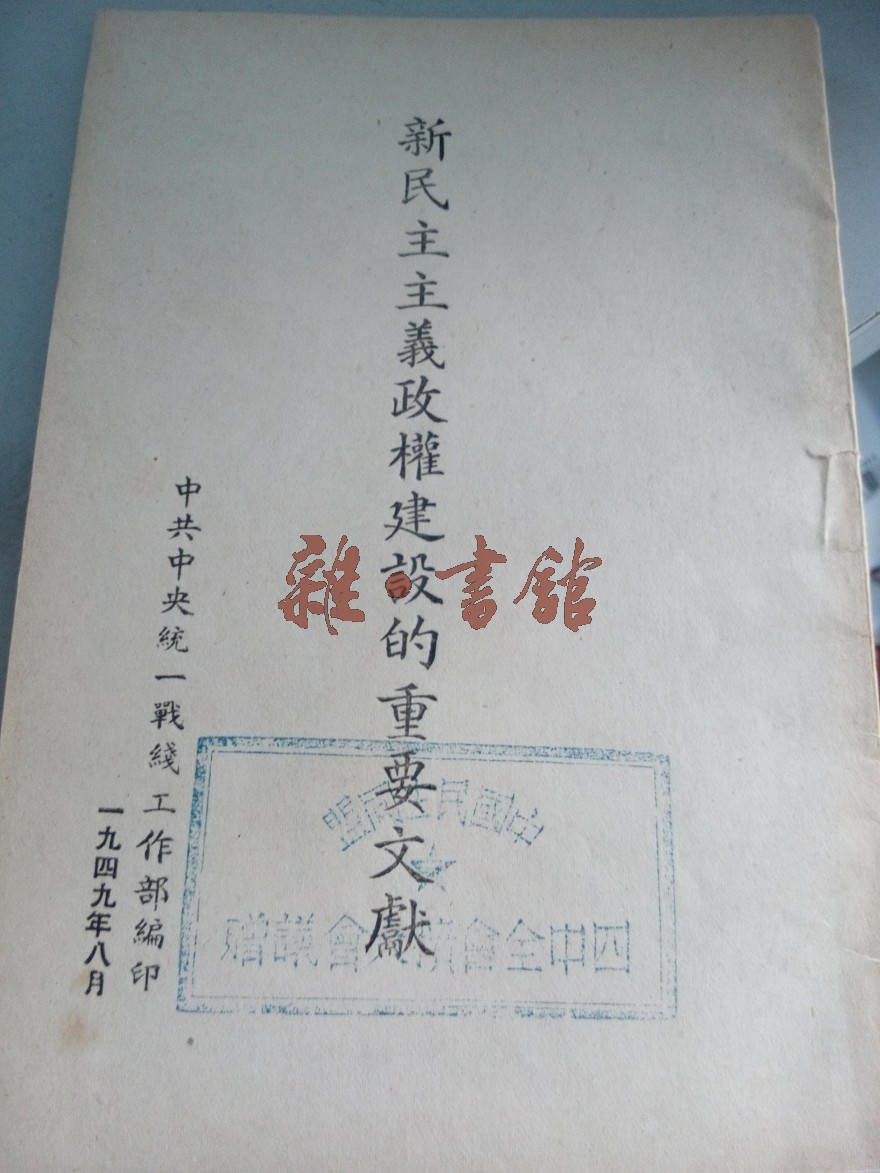 新民主主義政權建設的重要文獻
中共中央統一戰綫工作部編印
一九四九年八月
雜書館
中國民主同盟
四中全會會議贈